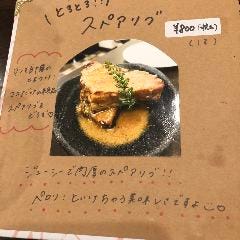 とろとろ!!
スペアリブ
¥800(税込)
スペアリブを
どうぞ
ジューシーで肉厚のスペアリブ!!
ペロリ といけちゃう美味しさですよ